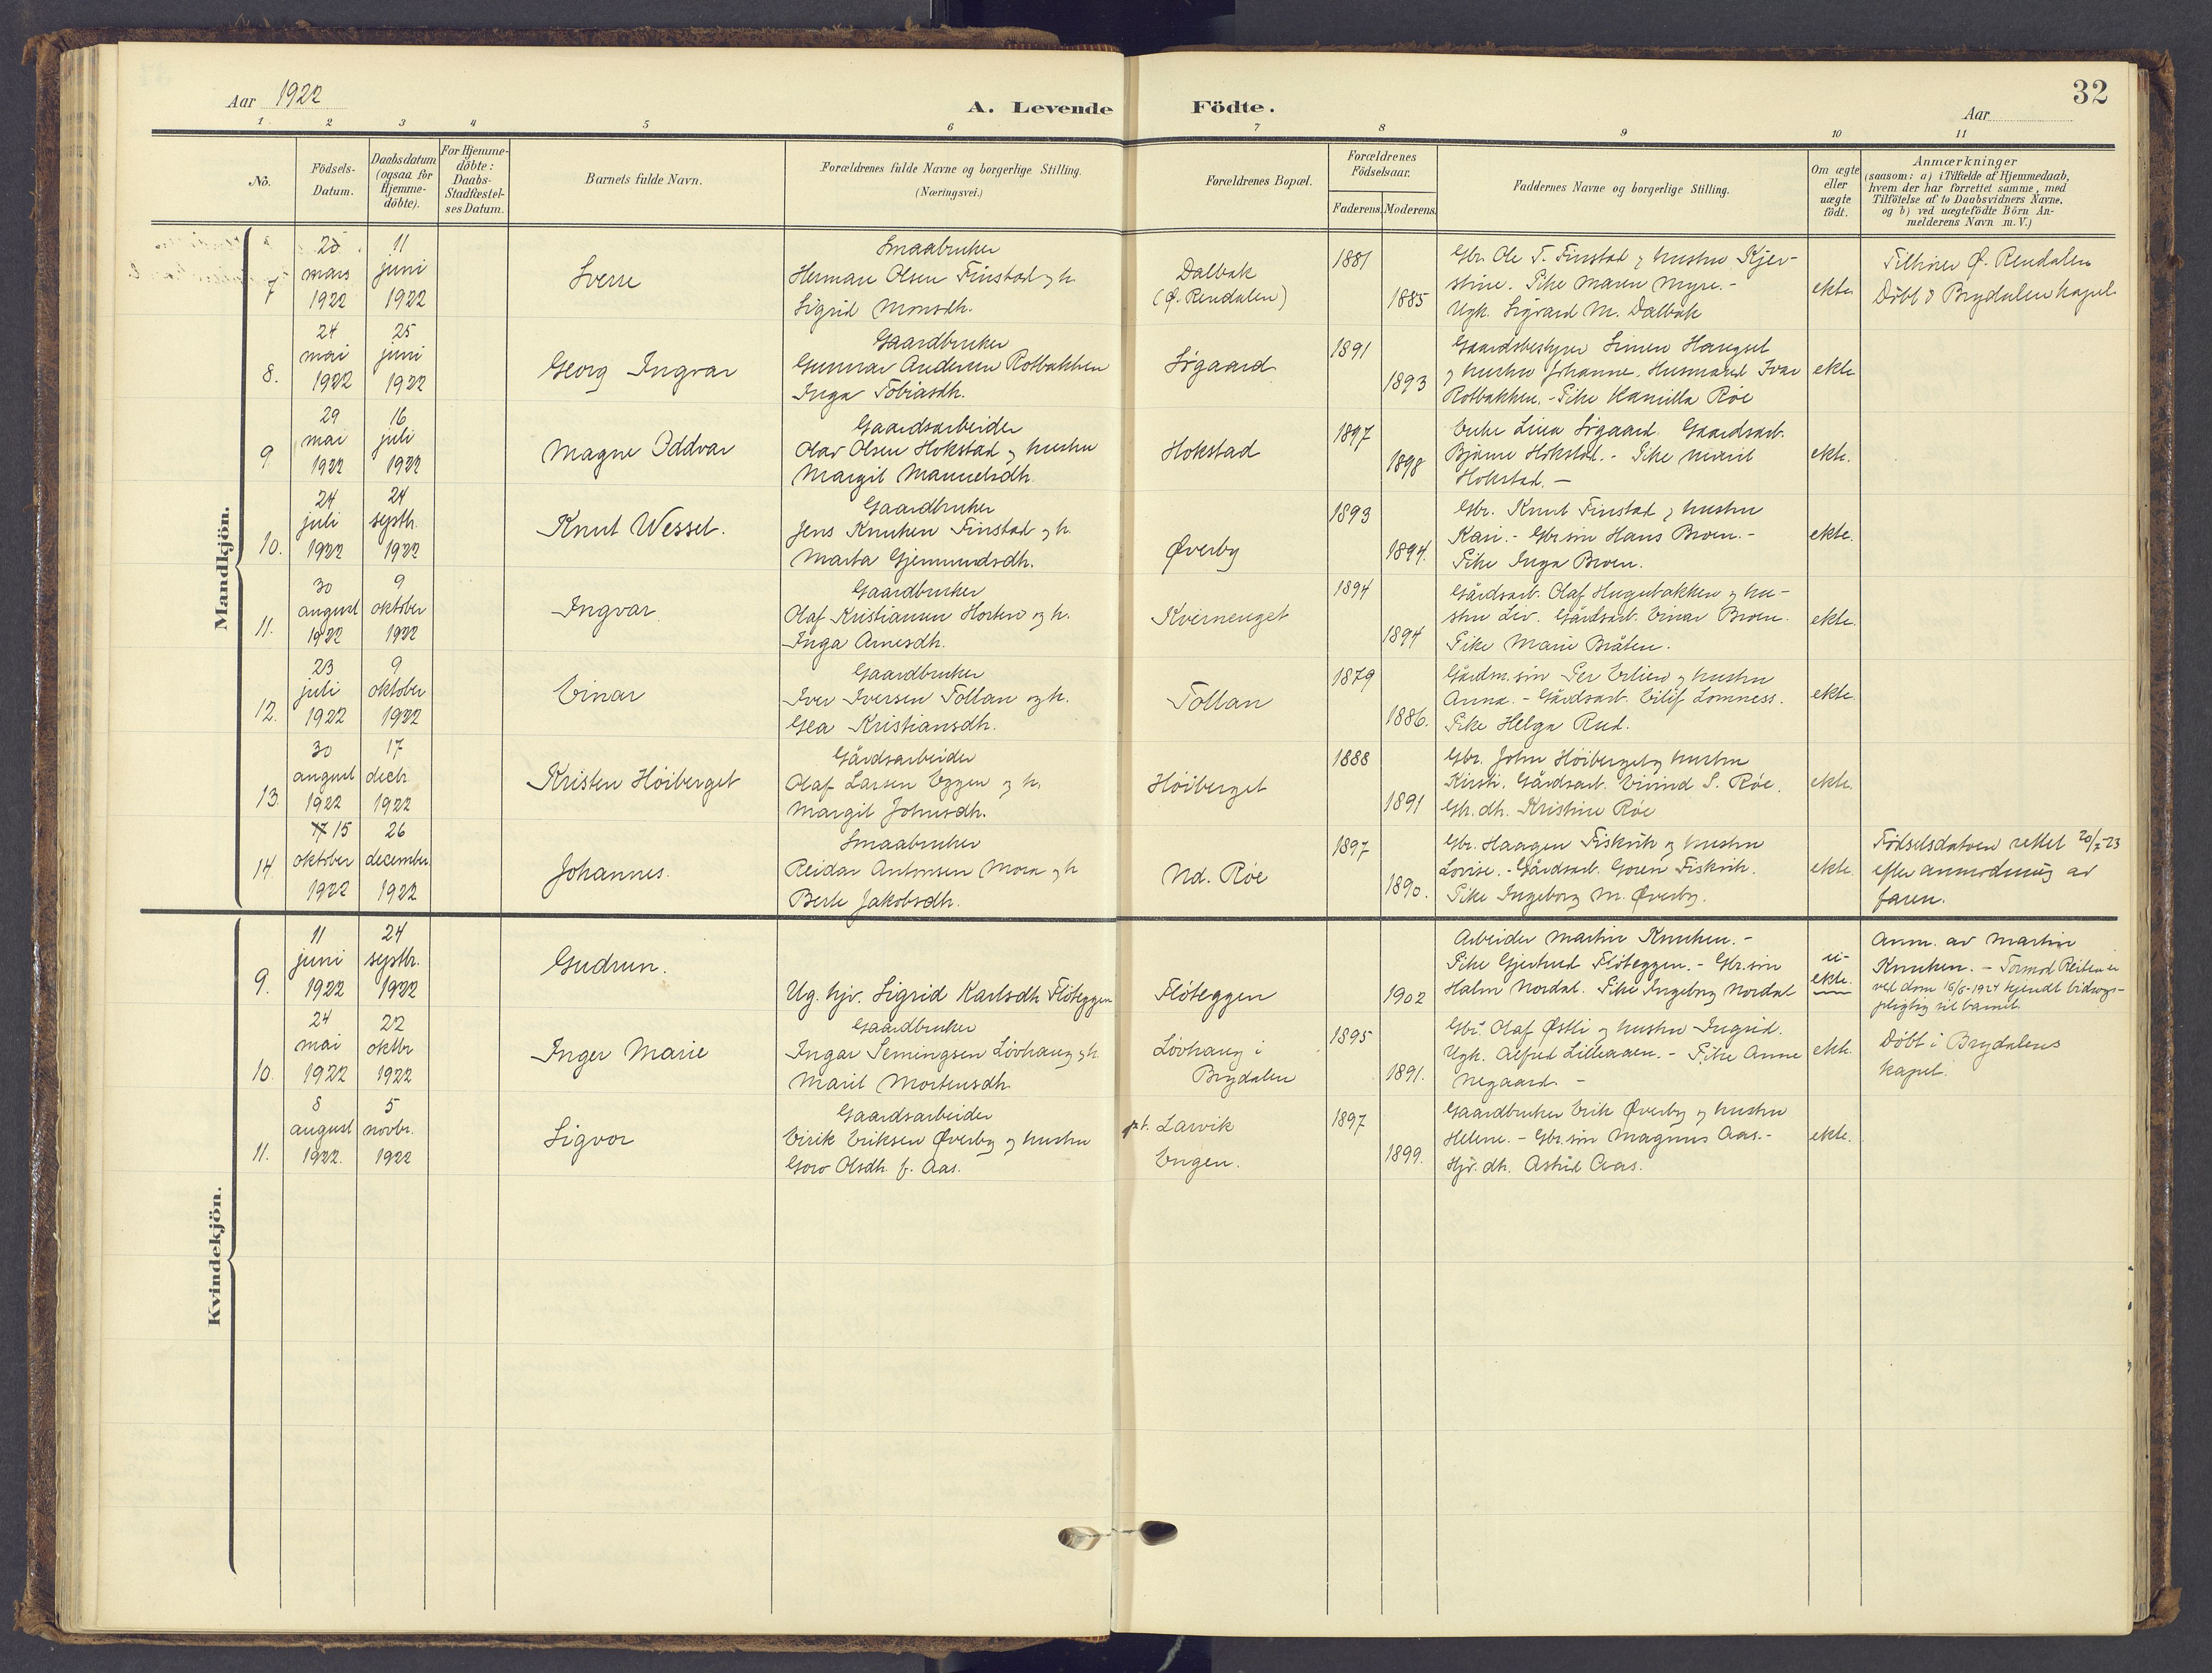 32
Aar 1922
A. Levende Födte.
Aar
1 2 3 4 5 6 7 8 9 10 11
Nô.
Födsels-Datum.
Daabsdatum (ogsaa for Hjemme-döbte).
For Hjemme-döbte: Daabs-Stadfæstel-ses Datum.
Barnets fulde Navn.
Forældrenes fulde Navne og borgerlige Stilling. (Næringsvei.)
Forældrenes Bopæl.
Forældrenes Födselsaar.
Faderens. Moderens.
Faddernes Navne og borgerlige Stilling.
Om ægte eller uægte födt.
Anmærkninger
(saasom: a) i Tilfælde af Hjemmedaab,
hvem der har forrettet samme, med
Tilföielse af to Daabsvidners Navne.
og b) ved uægtefödte Börn An-
melderens Navn m.V.)
Mandkjön.
7
mars 1922
11 juni 1922
Sverre
Smaabruker
Herman Olsen Finstad og h.
Sigrid Monsdh.
Dalbak
(Ø. Rendalen)
1881
1885
Gbr. Ole T. Finstad og hustru Kjer-
stine. Pike Maren Myre. -
Ugk. Sigvard M. Dalbak
ekte
Tilhører Ø. Rendalen
Døbt i Brydalen kapel
8.
24 mai 1922
25 juni 1922
Georg Ingvar
Gaardbruker
Gunnar Andersen Rotbakken
Inga Tobiasdh.
Søgaard
1891
1893
Gaardsbestyrer Simen Hangset
og hustru Johanne. Husmand Ivar
Rotbakken. - Pike Kamilla Røe
ekte
9
29 mai 1922
16 juli 1922
Magne Oddvar
Gaardsarbeider
Olav Olsen Hokstad og hustru
Margit Manuelsdh.
Hokstad
1897
1898
Enke Lina Søgaard. Gaardsarb.
Bjarne Hokstad. - Pike
Hokstad. -
ekte.
10.
24 juli 1922
24 septbr. 1922
Knut Wessel.
Gaardbruker
Jens Knutsen Finstad og h.
Marta Gjermundsdh.
Øverby
1893
1894.
Gbr. Knut Finstad og hustru
Kari. - Gbr.sön Hans Broen. -
Pike Inga Broen.
ekte.
11.
30 august 1922
9 oktober 1922
Ingvar.
Gaardbruker
Olaf Kristiansen Horten og h.
Inga Arnesdh.
Kvernenget
1894
1894
Gårdsarb. Olaf Haugsbakken og hu-
stru Liv. Gårdsarb. Einar Broen.
Pike Marie Bråten.
ekte.
12.
23 juli 1922
9 oktober 1922
Einar
Gaardbruker
Iver Iversen Tollan og h.
Gea Kristiansdh.
Tollan
1879
1886.
Gårdm.sön Per Erlien og hustru
Anna. - Gårdsarb. Eilif Lomness.
Pike Helga Rud.
ekte.
13.
30 august 1922
17 decbr. 1922
Kristen Höiberget
Gårdsarbeider
Olaf Larsen Eggen og h.
Margit Johnsdh.
Höiberget
1888
1891
Gbr. John Höiberget og hustru
Kirsti. Gårdsarb. Eivind S. Røe.
Gbr. dh. Kristine Røe
ekte.
14.
17 15 oktober 1922
26 december 1922
Johannes.
Smaabruker
Reidar Antonsen Mora og h
Berte Jakobsdh.
Nd. Røe
1897
1890.
Gbr. Haagen Fiskvik og hustru
Lovise. - Gårdsarb. Goren Fiskvik.
Pike Ingeborg M. Øverby.
ekte.
Fødselsdatoen rettet 20/7-23
efter anmodning av
faren.
Kvindekjön.
9.
11 juni 1922
24 septbr. 1922
Gudrun.
Ug. hjv. Sigrid Karlsdh Flöteggen
Flöteggen
1902
Arbeider Martin Knutsen. -
Pike Gjertrud Flöteggen. - Gbr.sön
Halm Nordal. Pike Ingeborg Nordal
u-
ekte.
Anm. av Martin
Knutsen. - Tormod Reiten er
ved dom 16/6-1924 kjendt bidrags-
pligtig til barnet.
10.
24 mai 1922
22 oktbr 1922
Inger Marie
Gaardbruker
Ingar Semingsen Lövhaug og h.
Marit Mortensdh.
Lövhaug i
Brydalen
1895
1891.
Gbr. Olaf Østli og hustru Ingrid.
Ugk. Alfred Lilleaaen. - Pike Anne
Negaard -
ekte.
Döbt i Brydalens
kapel.
11.
8 august 1922.
5 novbr. 1922
Sigvor
Gaardsarbeider
Eirik Eriksen Øverby og hustru
Goro Olsdh. f. Aas.
p.t. Larvik
Engen.
1897
1899.
Gaardbruker Erik Øverby og hustru
Helene. - Gbr.sön Magnus Aas. -
Hjv. dh. Astrid Aas.
ekte.